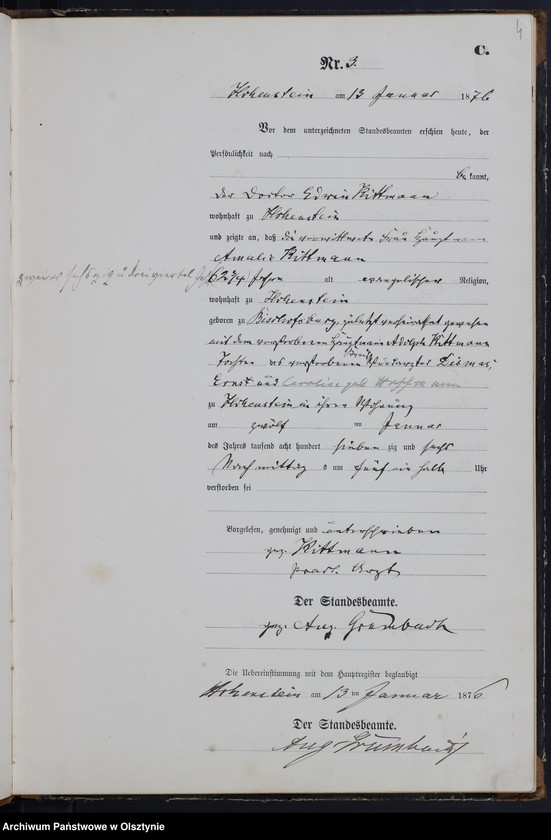 4
C.
Nr. 3.
Hohenstein am 13 Januar 1876
Vor dem unterzeichneten Standesbeamten erschien heute, der
Persönlichkeit nach
be kannt,
der Doctor Edwin Kittmann
wohnhaft zu Hohenstein
und zeigte an, daß die verwittwete Frau Hauptmann
Amalie Kittmann
62 3/4 Jahre alt evangelischer Religion,
wohnhaft zu Hohenstein
geboren zu Bischofsburg, zuletzt verheirathet gewesen
mit dem verstorbenen Hauptmann Adolph Kittmann
Tochter des verstorbenen
Ernst und Caroline geb Hoffmann
zu Hohenstein in ihrer Wohnung
am zwölf ten Januar
des Jahres tausend acht hundert sieben zig und sechs
Nachmittag s um fünf ein halb Uhr
verstorben sei
Vorgelesen, genehmigt und unterschrieben
gez. Kittmann
pract. Arzt
Der Standesbeamte.
gez. Aug. Grumbach
Die Uebereinstimmung mit dem Hauptregister beglaubigt
Hohenstein am 13 ten Januar 1876
Der Standesbeamte.
Aug Grumbach
Archiwum Państwowe w Olsztynie